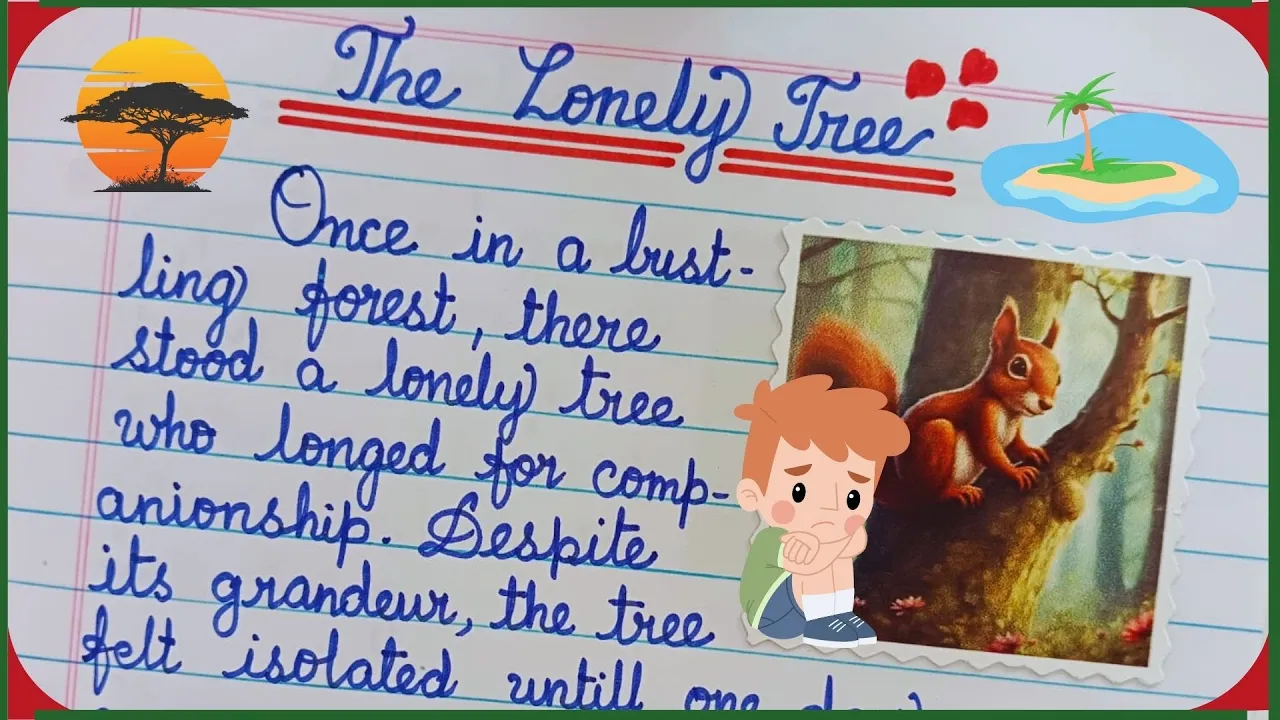 The Lonely Tree
Once in a bust-
ling forest, there
stood a lonely tree
who longed for comp-
anionship. Despite
its grandeur, the tree
felt isolated untill one day